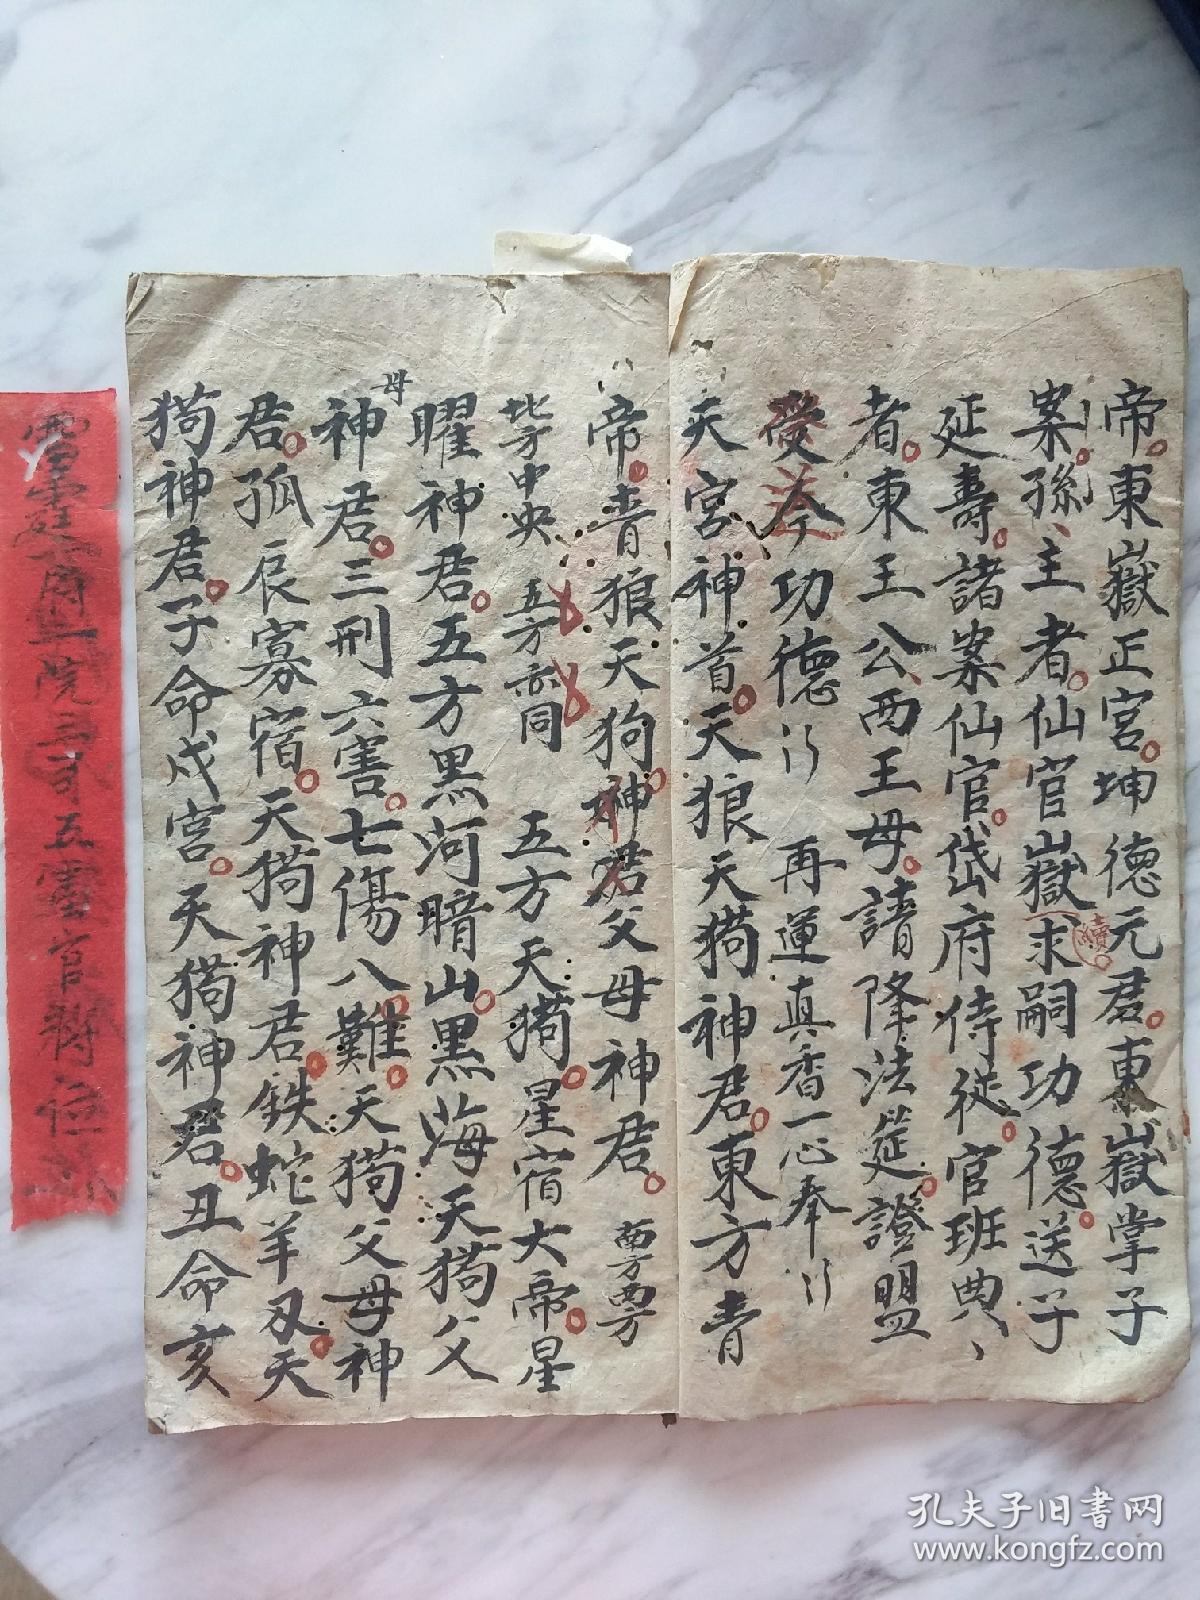 帝。東嶽正宮。坤德元君。東嶽掌子
案。孫、主者。仙官嶽求嗣功德。送子
續
延壽。諸案仙官。岱府侍従。官班典、
者。東王公西王母。請降法筵。證盟
受今功德 再運真香一心奉
天宮神首。天狼天猗神君。東方青
帝。青狼天狗。神君父母神君。 南方西方
北方中央 五方亦同 五方天猗。星宿大帝。星
曜神君。五方黑河暗山。黑海天猗父
母
神君。三刑六害。七傷八難。天猗父母神
君。孤辰寡宿。天猗神君。鉄蛇羊刃。天
猗神君。子命戌宮。天猗神君。丑命亥
五靈官將位
孔夫子旧书网
www.kongfz.com